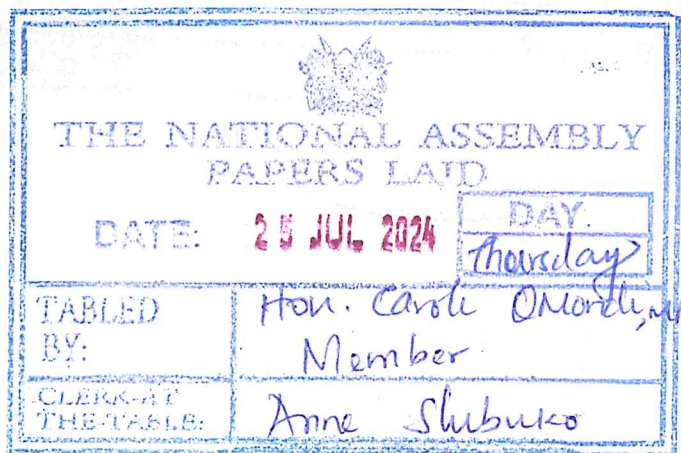 THE NATIONAL ASSEMBLY
PAPERS LAID
DATE: 25 JUL 2024
DAY.
Thursday
TABLED BY:
Hon. Carole Omondi,
Member
CLERK-AT THE-TABLE:
Anne Shibuko